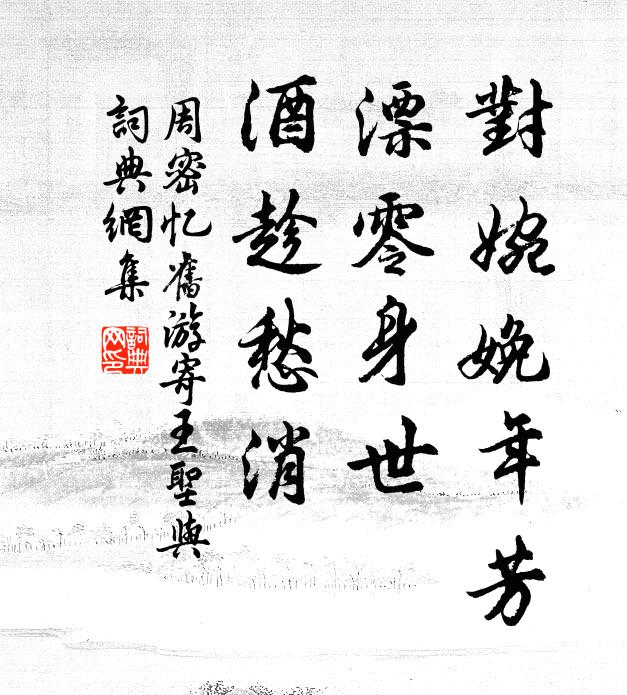 對婉娩年芳
漂零身世
酒趁愁消
周密忆舊游寄王聖與
詞典網集
詞典
网印